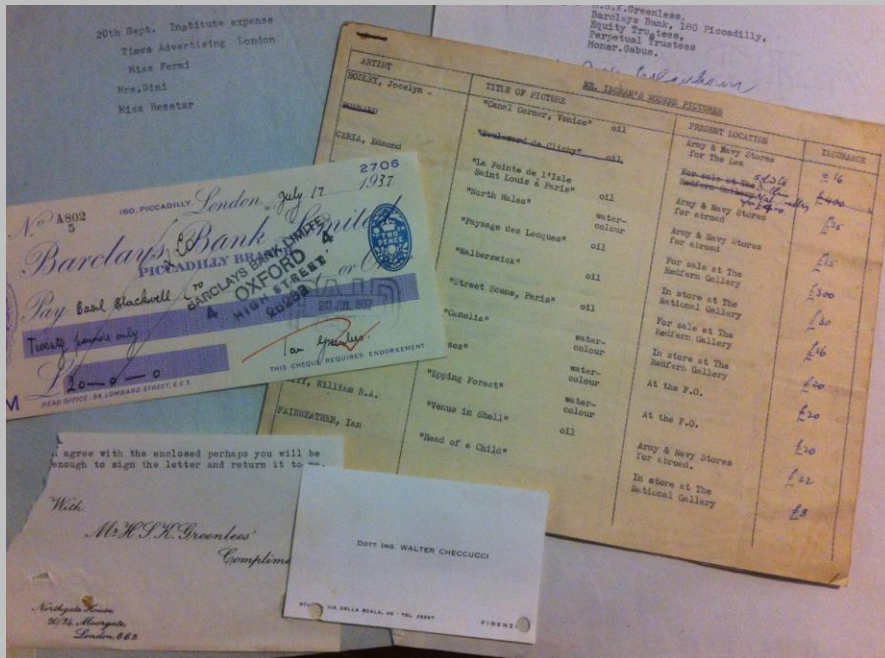 20th Sept. Institute expense
Times Advertising London
Miss Fermi
Mrs.Dini
Miss Resetar
H.S.K.Greenless.
Barclays Bank, 180 Piccadilly.
Equity Trustees,
Perpetual Trustees
Honor.Gabus.
MR. INGRAM'S MODERN PICTURES
ARTIST TITLE OF PICTURE PRESENT LOCATION INSURANCE
BODLEY, Jocelyn "Canal Corner, Venice" oil Army & Navy Stores
for The Lea £ 16
BONNARD "Boulevard de Clichy" oil For sale at The
Redfern Gallery £400
CERIA, Edmond "La Pointe de l'Isle
Saint Louis à Paris" oil Army & Navy Stores
for abroad £25
"North Wales" water-
colour Army & Navy Stores
for abroad £15
"Paysage des Lecques" oil For sale at The
Redfern Gallery £300
"Walberswick" oil In store at The
National Gallery £30
"Street Scene, Paris" oil For sale at The
Redfern Gallery £16
"Camelia" water-
colour In store at The
Redfern Gallery £20
water-
colour At the F.O. £20
William R.A. "Epping Forest" water-
colour At the F.O. £20
FAIRWEATHER, Ian "Venus in Shell" oil Army & Navy Stores
for abroad. £22
"Head of a Child" In store at The
National Gallery £8
2706
No A802
5
160, PICCADILLY, London July 17 1937
Barclays Bank Limited
PICCADILLY BRANCH
TWO PENCE
Pay Basil Blackwell or
Twenty pounds only
£20-0-0
BARCLAYS BANK LIMITED
4 OXFORD 4
HIGH STREET
PAID
20 JUL 1937
Ian Greenlees.
THIS CHEQUE REQUIRES ENDORSEMENT.
HEAD OFFICE, 54, LOMBARD STREET, E.C.3.
agree with the enclosed perhaps you will be
enough to sign the letter and return it to me.
With
Mr H.S.K. Greenlees'
Complime
Northgate House
20/24, Moorgate,
London, E.C.2.
DOTT. ING. WALTER CHECCUCCI
VIA DELLA SCALA, TEL.
FIRENZ